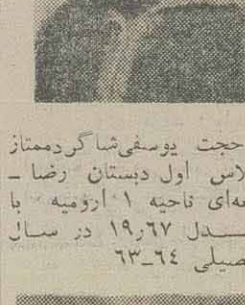 حجت یوسفی شاگرد ممتاز
لاس اول دبستان رضا ـ
ه‌ای ناحیه ۱ ارومیه با
ـدل ۱۹٫۶۷ در سال
صیلی ۶۴ـ۶۳